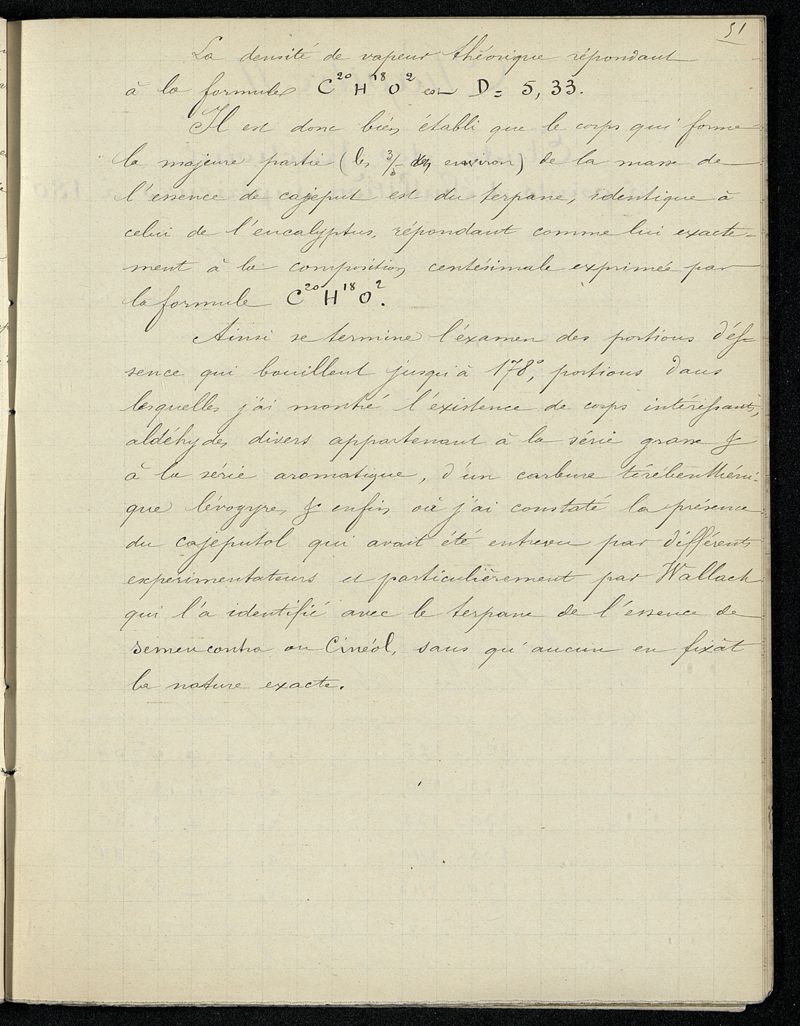 51
La densité de vapeur théorique répondant
à la formule C²⁰H¹⁸O² est D = 5,33.
Il est donc bien établi que le corps qui forme
la majeure partie (les 3/5 environ) de la masse de
l'essence de cajeput est du terpane, identique à
celui de l'eucalyptus, répondant comme lui exacte-
ment à la composition centésimale exprimée par
la formule C²⁰H¹⁸O².
Ainsi se termine l'éxamen des portions d'es-
sence qui bouillent jusqu'à 178°, portions dans
lesquelles j'ai montré l'existence de corps intéressants,
aldéhydes divers appartenant à la série grasse &
à la série aromatique, d'un carbure térébenthéni-
que lévogyre, & enfin où j'ai constaté la présence
du cajeputol qui avait été entrevu par différents
expérimentateurs et particulièrement par Wallach
qui l'a identifié avec le terpane de l'essence de
semen contra ou Cinéol, sans qu'aucun en fixât
la nature exacte.